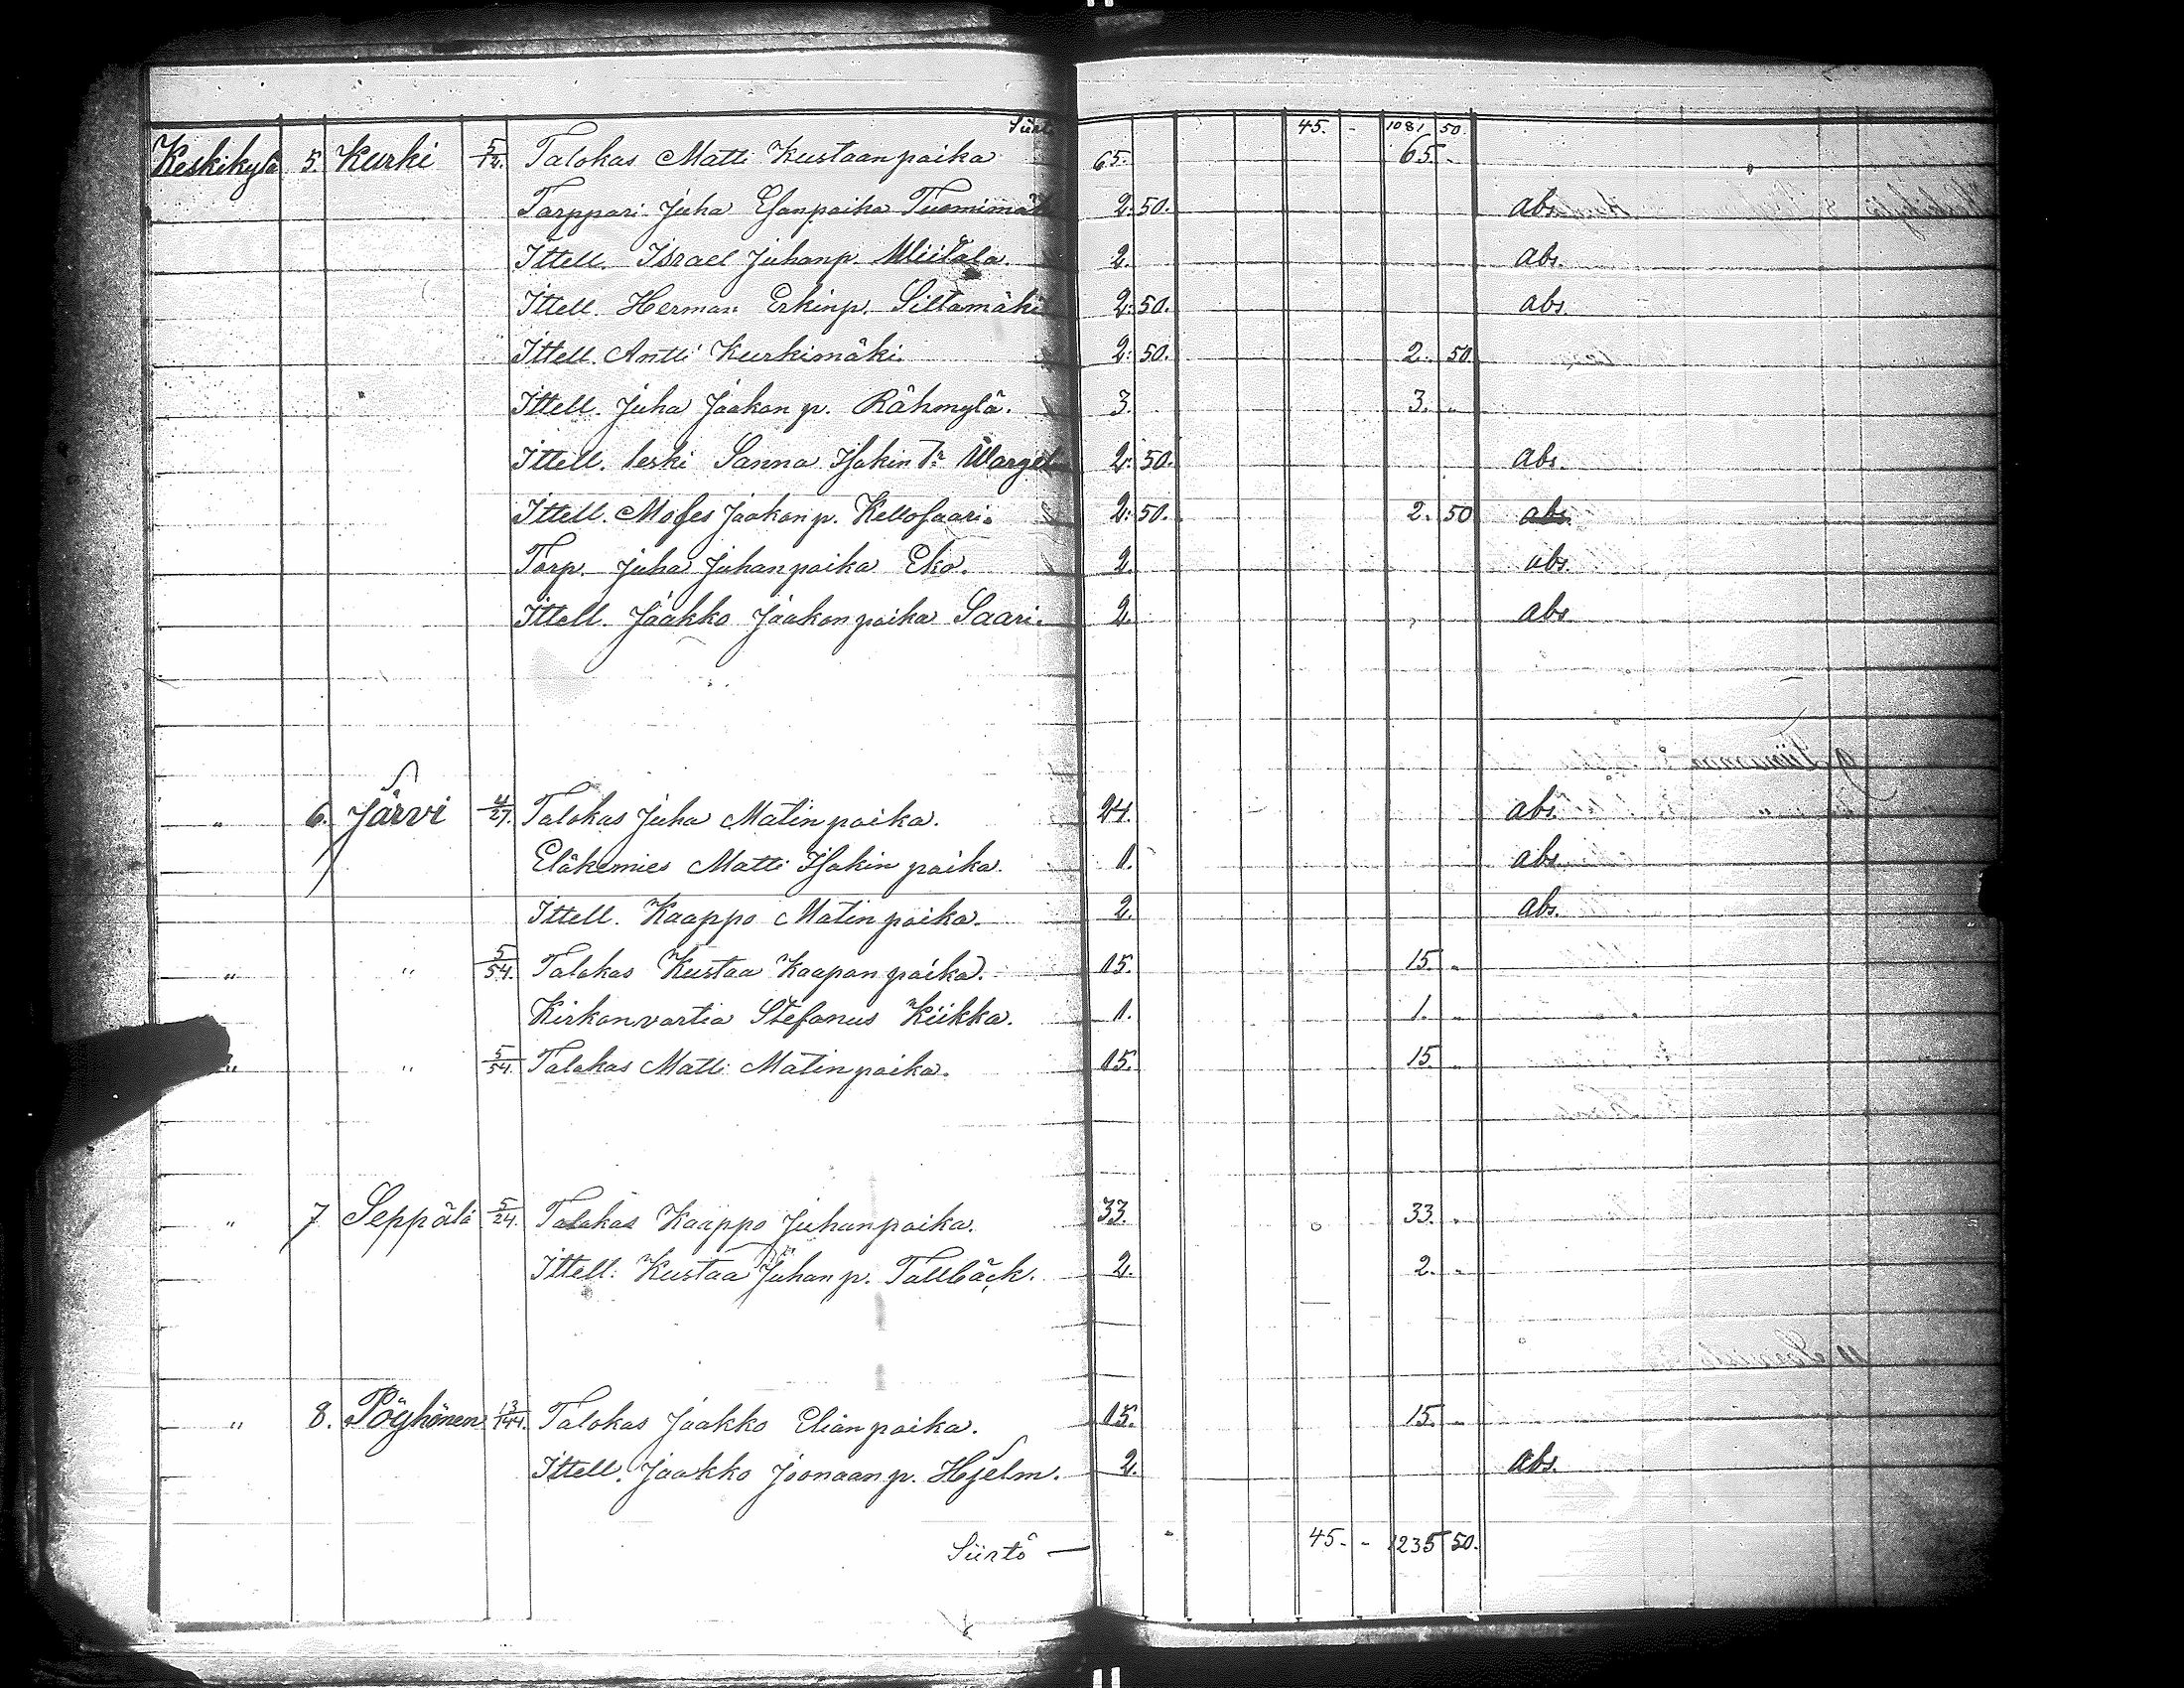 Siirto 45. - 1081 50.
Keskikylä 5. Kurki 5/12. Talokas Matti Kustaanpoika 65. 65. -
Torppari Juha Esanpoika Tuomimäki 2. 50. abs.
Ittell. Israel Juhanp. Wiitala. 2. abs.
Ittell. Herman Erkinp. Siltamäki 2. 50. abs.
Ittell. Antti Kurkimäki. 2. 50. 2. 50.
Ittell. Juha Jaakon p. Rähmylä. 3. 3. -
Ittell. leski Sanna Isakin Tr 2. 50. abs.
Ittell. Moses Jaakon p. Kellosaari. 2. 50. 2. 50 abs.
Torp. Juha Juhanpoika Eko. 2. abs.
Ittell. Jaakko Jaakonpoika Saari. 2. abs.
" 6. Järvi 4/27. Talokas Juha Matinpoika. 24. abs.
Eläkemies Matti Isakin poika. 1. abs.
Ittell. Kaappo Matinpoika. 2. abs.
" " 5/54. Talokas Kustaa Kaapon poika. 15. 15. -
Kirkonvartia Stefanus Kiikka. 1. 1. -
" " 5/54. Talokas Matti Matinpoika. 15. 15. -
" 7 Seppälä 5/24. Talokas Kaappo Juhanpoika. 33. 33. -
Ittell. Kustaa Juhan p. Tallbäck. 2. 2. -
" 8. Pöyhönen 13/144. Talokas Jaakko Elianpoika. 15. 15. -
Ittell. Jaakko Joonaan p. Hjelm. 2. abs.
Siirto — 45. - 1235 50.